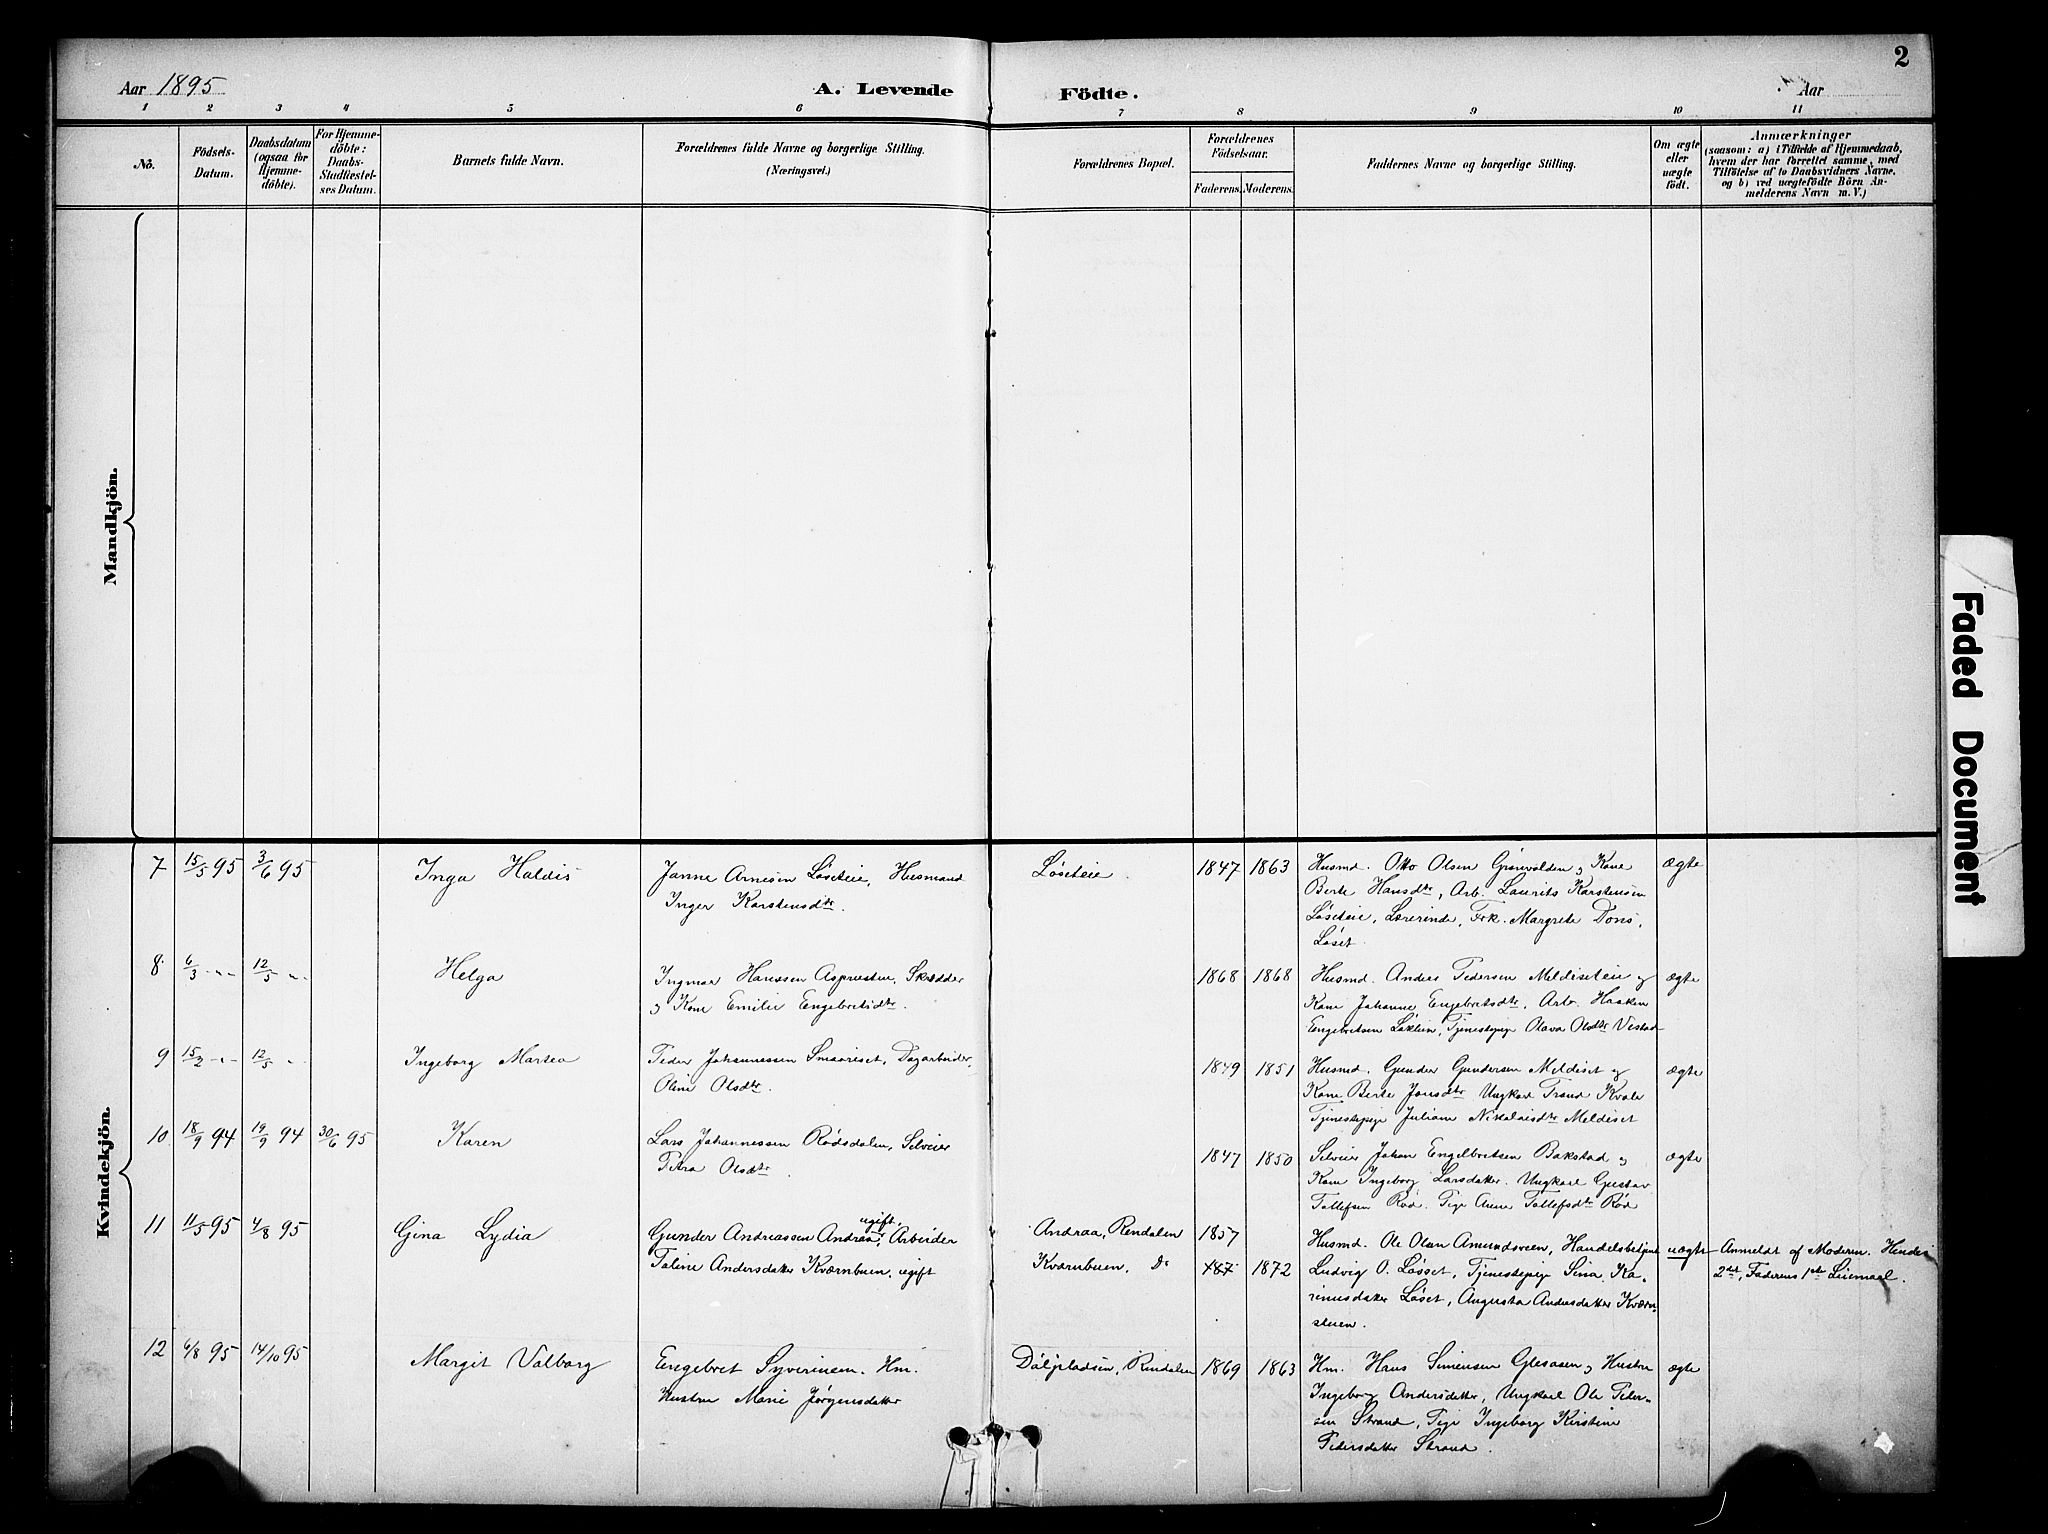 2
Aar 1895
A. Levende Födte.
Aar
1 2 3 4 5 6 7 8 9 10 11
No.
Födsels-Datum.
Daabsdatum (ogsaa for Hjemme-döbte).
For Hjemme-döbte: Daabs-Stadfæstel-ses Datum.
Barnets fulde Navn.
Forældrenes fulde Navne og borgerlige Stilling.
(Næringsvei.)
Forældrenes Bopæl.
Forældrenes Födselsaar.
Faderens. Moderens.
Faddernes Navne og borgerlige Stilling.
Om ægte eller uægte födt.
Anmærkninger
(saasom: a) i Tilfælde af Hjemmedaab,
hvem der har forrettet samme, med
Tilföielse af to Daabsvidners Navne,
og b) ved uægtefödte Börn An-
melderens Navn m. V.)
Mandkjön.
Kvindekjön.
7 15/5 95 3/6 95 Inga Haldis Janne Arnesen Løseteie, Husmand Løseteie. 1847 1863 Husmd. Otto Olsen Kone ægte
Inger Karstensdtr. Berte Hansdtr, Arb. Laurits Karstensen
Løseteie, Lærerinde, Frk. Margrete Dons,
Løset.
8 6/3 -"- 12/5 -"- Helga Ingmar Hanssen Skrædder 1868 1868 Husmd. Anders Pedersen Meldiseteie og ægte
og Kone Emilie Engebretsdtr. Kone Johanne Engebretsdtr, Arb. Haaken
Engebretsen Tjenestepige Olava Olsdtr Vestad
9 15/2 -"- 12/5 -"- Ingeborg Martea Peder Johannessen Smaariset, Dagarbeider, 1849 1851 Husmd. Gunder Gundersen Meldiset og ægte
Oline Olsdtr. Kone Berte Jonsdtr Ungkarl Trond Kvale
Tjenestepige Juliane Nikolaisdtr Meldiset
10 18/9 94 19/9 94 30/6 95 Karen Lars Johannessen Rødsdalen, Selveier 1847 1850 Selveier Johan Engelbretsen Bakstad og ægte
Petra Olsdtr. Kone Ingeborg Larsdatter. Ungkarl Gustav
Tollefsen Rød. Pige Anne Tollefsdtr Rød
11 11/5 95 4/8 95 Gina Lydia Gunder Andreassen Andraa, ugift, Arbeider Andraa, Rendalen 1857 Husmd. Ole Olsen Amundsveen, Handelsbetjent uægte Anmeldt af Moderen. Hendes
Taline Andersdatter Kværnbuen, ugift Kværnbuen, Do 187 1872 Ludvig O. Løset, Tjenestepige Sina Ka- 2det, Faderens 1ste Leiermaal.
rinusdatter Løset, Augusta Andersdatter Kværn-
stuen.
12 6/8 95 14/10 95 Margit Valborg Engebret Syverinsen. Hm. Dølpladsen, Rendalen 1869 1863 Hm. Hans Simensen Glesaasen og Hustru ægte
Hustru Marie Jørgensdatter Ingeborg Andersdatter, Ungkarl Ole Peder-
sen Strand, Pige Ingeborg Kirstine
Pedersdatter Strand.
Faded Document